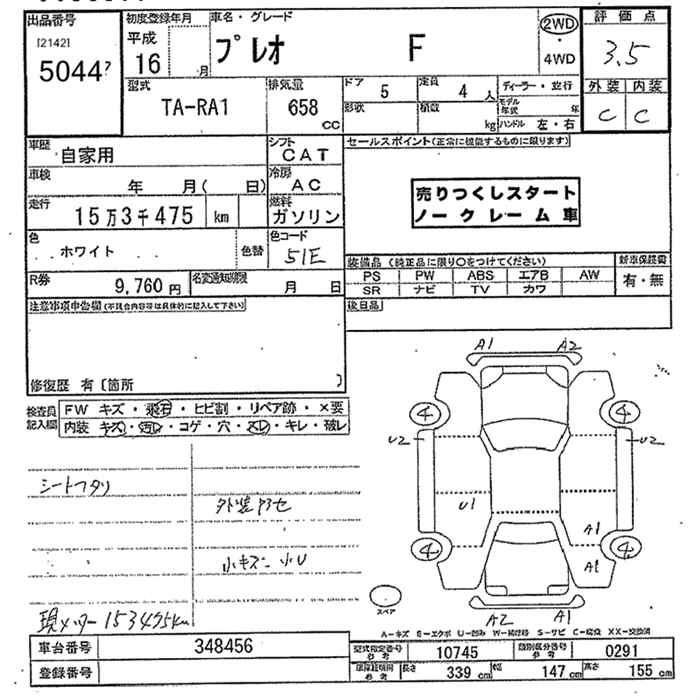 出品番号
[2142]
5044
初度登録年月
平成
16 月
車名・グレード
プレオ F
2WD
・
4WD
評価点
3.5
外装 内装
C C
型式
TA-RA1
排気量
658
CC
ドア 5
定員 4 人
形状
積載 kg
ディーラー・並行
モデル年式 年
ハンドル 左・右
車歴
自家用
シフト
CAT
車検
年 月( 日)
冷房
AC
走行
15万3千475 km
燃料
ガソリン
色
ホワイト
色替
色コード
51E
R券
9,760 円
名変通知期限
月 日
セールスポイント(正常に機能するものに限ります)
売りつくしスタート
ノークレーム車
装備品(純正品に限り○をつけてください)
新車保証書
PS PW ABS エアB AW
SR ナビ TV カワ
有・無
後日品
注意事項申告欄(不具合内容等は具体的に記入して下さい)
修復歴 有〔箇所 〕
検査員
記入欄
FW キズ・飛石・ヒビ割・リペア跡・×要
内装 キズ・汚れ・コゲ・穴・スレ・キレ・破レ
シートヘタリ
外装アセ
小キズ 小U
現メーター153475km
A1 A2
4 4
U2 U2
U1
A1
A1
4 4
スペア
A2 A1
A-キズ E-エクボ U-凹み W-補修跡 S-サビ C-腐食 XX-交換済
車台番号 348456
登録番号
型式指定番号
参考
10745
類別区分番号
参考
0291
長さ 339 cm
幅 147 cm
高さ 155 cm